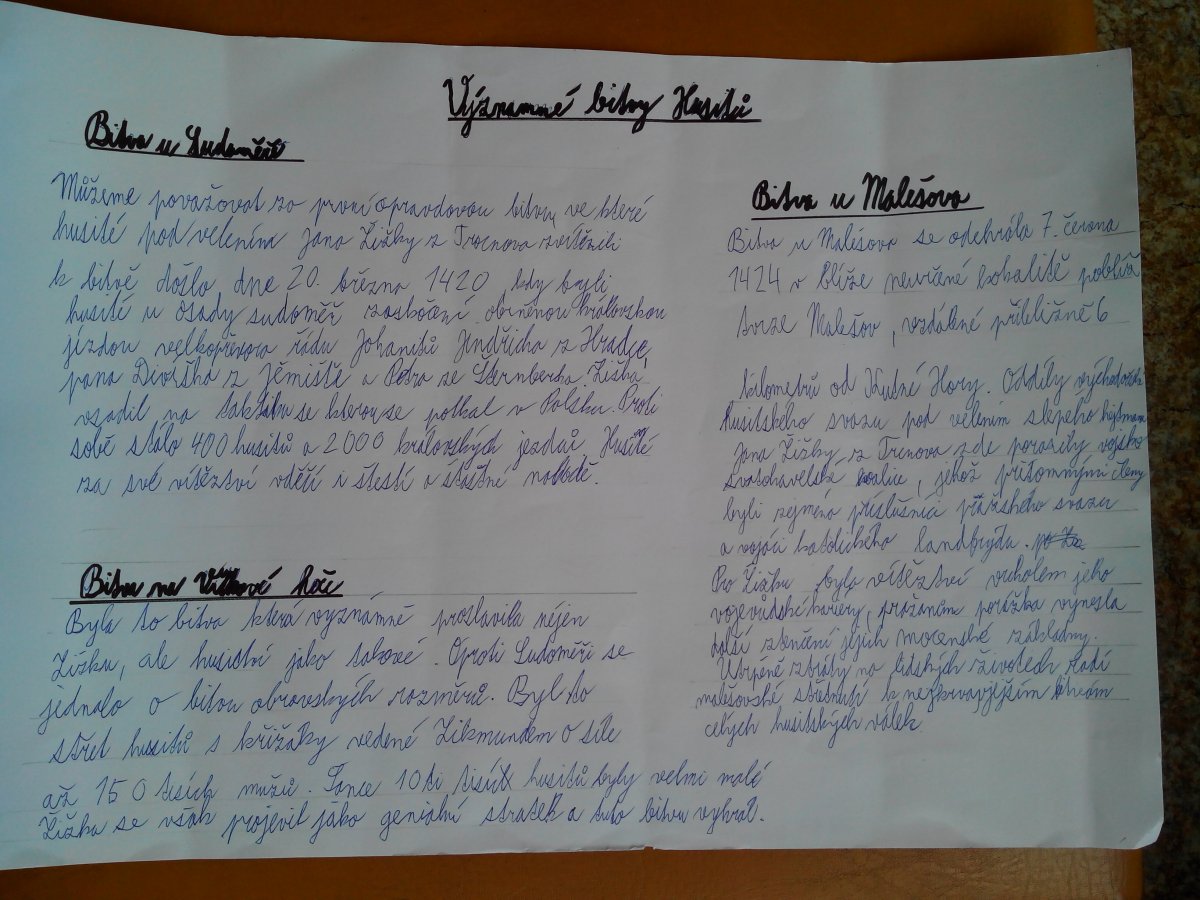 Významné bitvy Husitů
Bitva u Sudoměře
Můžeme považovat za první opravdovou bitvu, ve které
husité pod velením Jana Žižky z Trocnova zvítězili
k bitvě došlo dne 20. března 1420 kdy byli
husité u osady sudoměř zaskočeni obrněnou královskou
jízdou velkopřevora řádu Johanitů Jindřicha z Hradce,
pana Diviška z Jemiště a Petra ze Šternberka. Žižka
vsadil na taktiku se kterou se potkal v Polsku. Proti
sobě stálo 400 husitů a 2000 královských jezdců. Husité
za své vítězství vděčí i štěstí a šťastné náhodě.
Bitva na Vítkově hoře
Byla to bitva která význámně proslavila nejen
Žižku, ale husictví jako takové. Oproti Sudoměři se
jednalo o bitvu obrovských rozměrů. Byl to
střet husitů s křižáky vedené Zikmundem o síle
až 150 tisích mužů. Šance 10ti tisíc husitů byly velmi malé
Žižka se však projevil jako geniální stratek a tuto bitvu vyhrál.
Bitva u Malešova
Bitva u Malešova se odehrála 7. června
1424 v blíže neurčené lokalitě poblíž
tvrze Malešov, vzdálené přibližně 6
kilometrů od Kutné Hory. Oddíly východočeského
husitského svazu pod velením slepého hejtmana
Jana Žižky z Trcnova zde porazily vojsko
Svatohavelské koalice, jehož přítomnými členy
byli zejména příslušníci pražského svazu
a vojáci katolického landfrýdu.
Pro Žižku bylo vítězství vrcholem jeho
vojevůdské kariery, pražanům porážka vynesla
další ztenčání jejich mocenské základny.
Utrpěné ztráty na lidských životech řadí
malešovské střetnutí k nejkrvavějším bitvám
celých husitských válek.